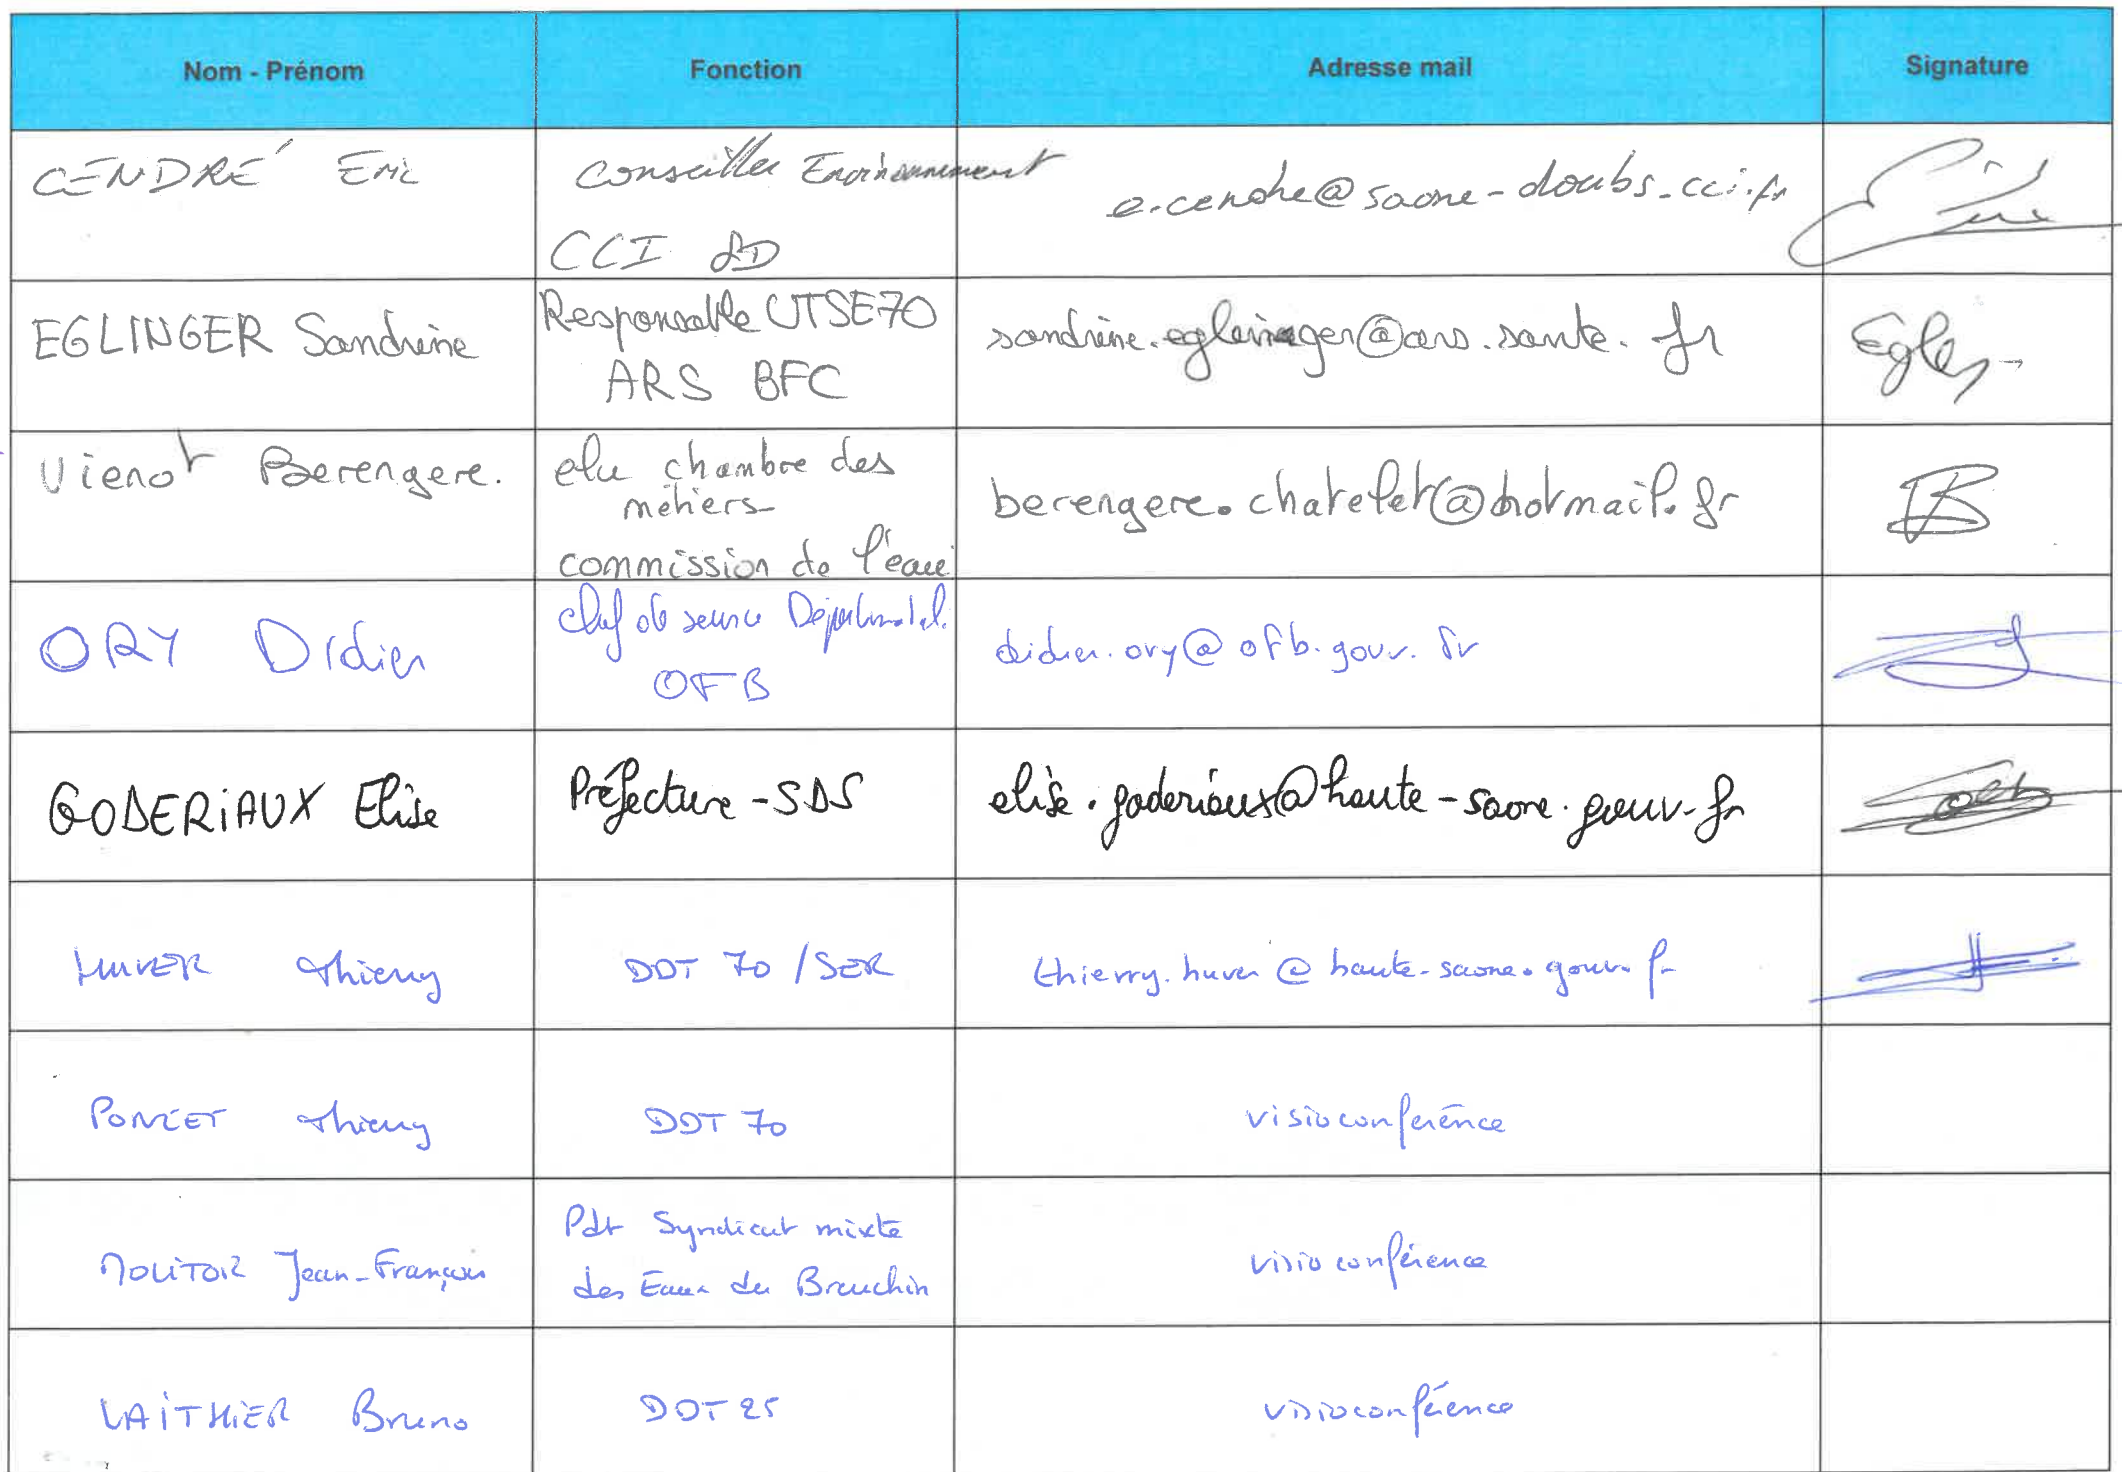 Nom - Prénom Fonction Adresse mail Signature
CENDRÉ Eric Conseiller Environnement e.cendre@saone-doubs.cci.fr
CCI SD
EGLINGER Sandrine Responsable UTSE70 sandrine.eglinger@ars.sante.fr
ARS BFC
Vienot Berengere. elu chambre des berengere.chatelet@hotmail.fr
métiers
commission de l'eau
ORY Didier chef de service Départemental. didier.ory@ofb.gouv.fr
OFB
GODERIAUX Elise Préfecture - SDS elise.goderiaux@haute-saone.gouv.fr
HUVER Thierry DDT 70 / SER thierry.huver@haute-saone.gouv.fr
PONCET Thierry DDT 70 visioconférence
MOLITOR Jean-François Pdt Syndicat mixte visioconférence
des Eaux du Breuchin
LAITHIER Bruno DDT 25 visioconférence